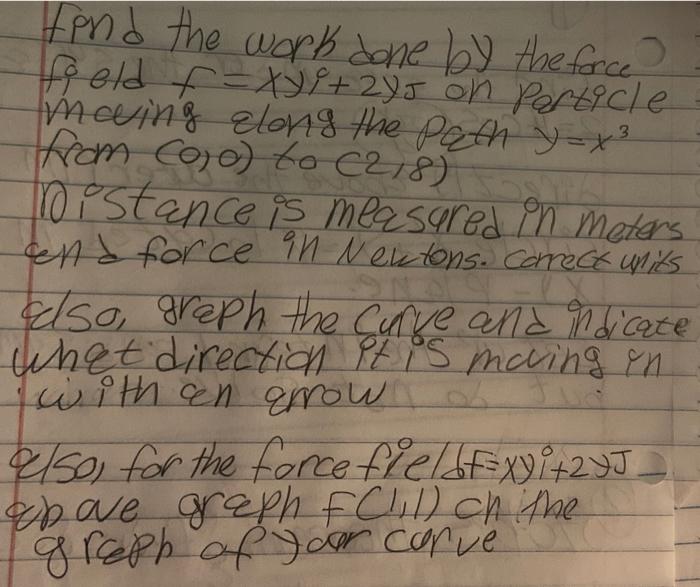 Find the work done by the force
field F = xyi + 2yJ on particle
moving along the path y = x³
from (0,0) to (2,8)
Distance is measured in meters
and force in Newtons. correct units
also, graph the curve and indicate
what direction it is moving in
with an arrow
also, for the force field F=xyi+2yJ
above graph F(1,1) on the
graph of your curve